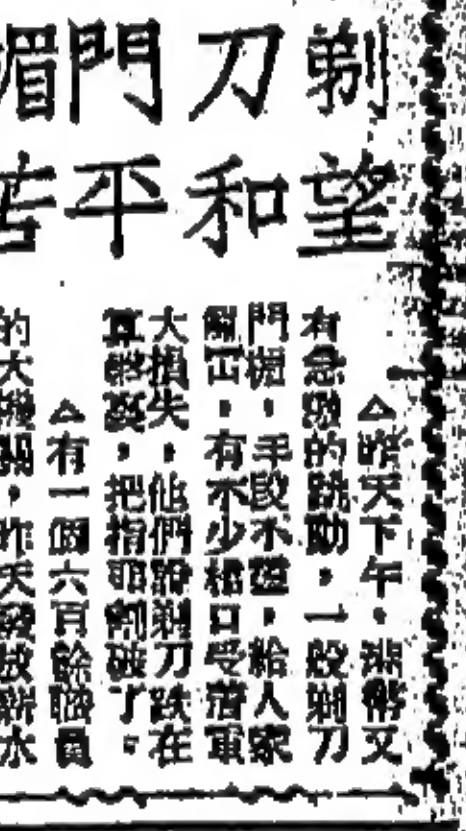 剃刀門楣
望和平苦
△昨天下午，幣又
有急激的跳動，一般剃刀
門楣，手段不靈，給人家
出，有不少檔口受着重
大損失，他們說剃刀跌在
算盤裏，把指甲割破了。
△有一個六百餘職員
的大機關，昨天發放薪水